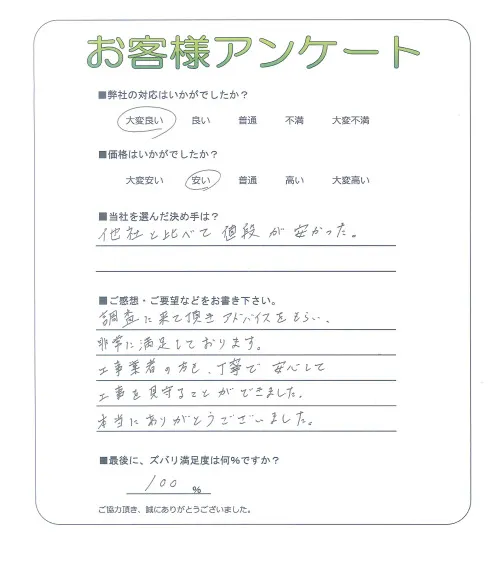 お客様アンケート
■弊社の対応はいかがでしたか？
大変良い 良い 普通 不満 大変不満
■価格はいかがでしたか？
大変安い 安い 普通 高い 大変高い
■当社を選んだ決め手は？
他社と比べて値段が安かった。
■ご感想・ご要望などをお書き下さい。
調査に来て頂きアドバイスをもらい、
非常に満足しております。
工事業者の方も、丁寧で安心して
工事を見守ることができました。
本当にありがとうございました。
■最後に、ズバリ満足度は何％ですか？
100 %
ご協力頂き、誠にありがとうございました。